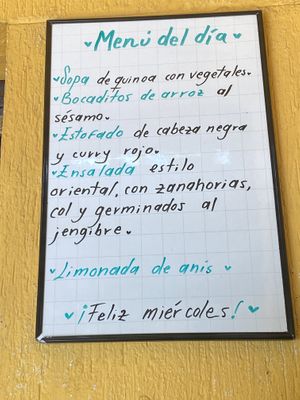 Menú del día
Sopa de quinoa con vegetales.
Bocaditos de arroz al
sésamo.
Estofado de cabeza negra
y curry rojo.
Ensalada estilo
oriental, con zanahorias,
col y germinados al
jengibre.
Limonada de anis
¡Feliz miércoles!